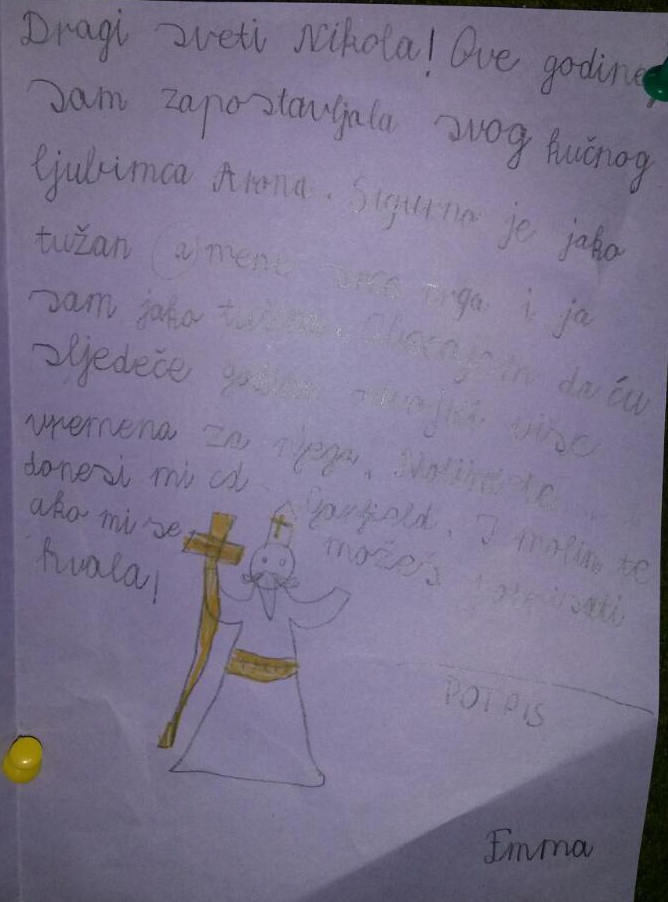 Dragi sveti Nikola! Ove godine,
sam zapostavljala svog kučnog
ljubimca Arona. Sigurno je jako
tužan a mene srce trga i ja
sam jako tužna. Obećajem da ću
sljedeče godine odvajati više
vremena za njega. Molim te
donesi mi cd Garfield. I molim te
ako mi se možeš potpisati
hvala!
POTPIS
Emma